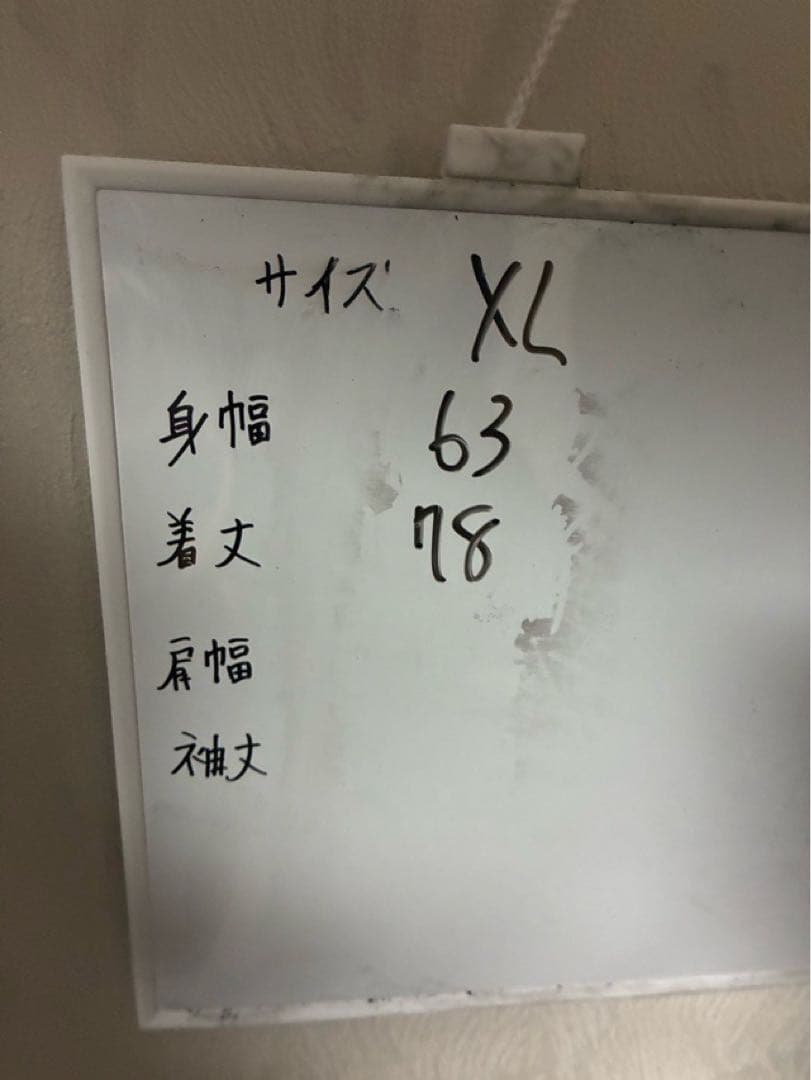 サイズ XL
身幅 63
着丈 78
肩幅
袖丈